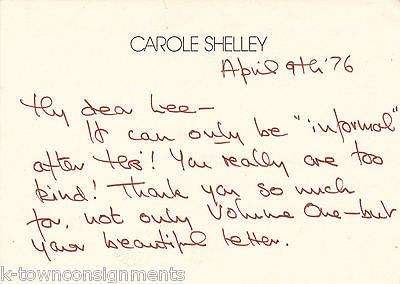 CAROLE SHELLEY
April 9th '76
My dear Lee—
It can only be "informal"
after this! You really are too
kind! Thank you so much
for, not only Volume One—but
your beautiful letter.
k-townconsignments